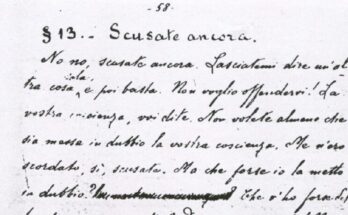 - 58 -
§ 13. - Scusate ancora.
No no, scusate ancora. Lasciatemi dire un'al-
tra cosa sola, e poi basta. Non voglio offendervi! La
vostra coscienza, voi dite. Non volete almeno che
sia messa in dubbio la vostra coscienza. Me n'ero
scordato, sì, scusate. Ma che forse io la metto
in dubbio? Che v'ho forse